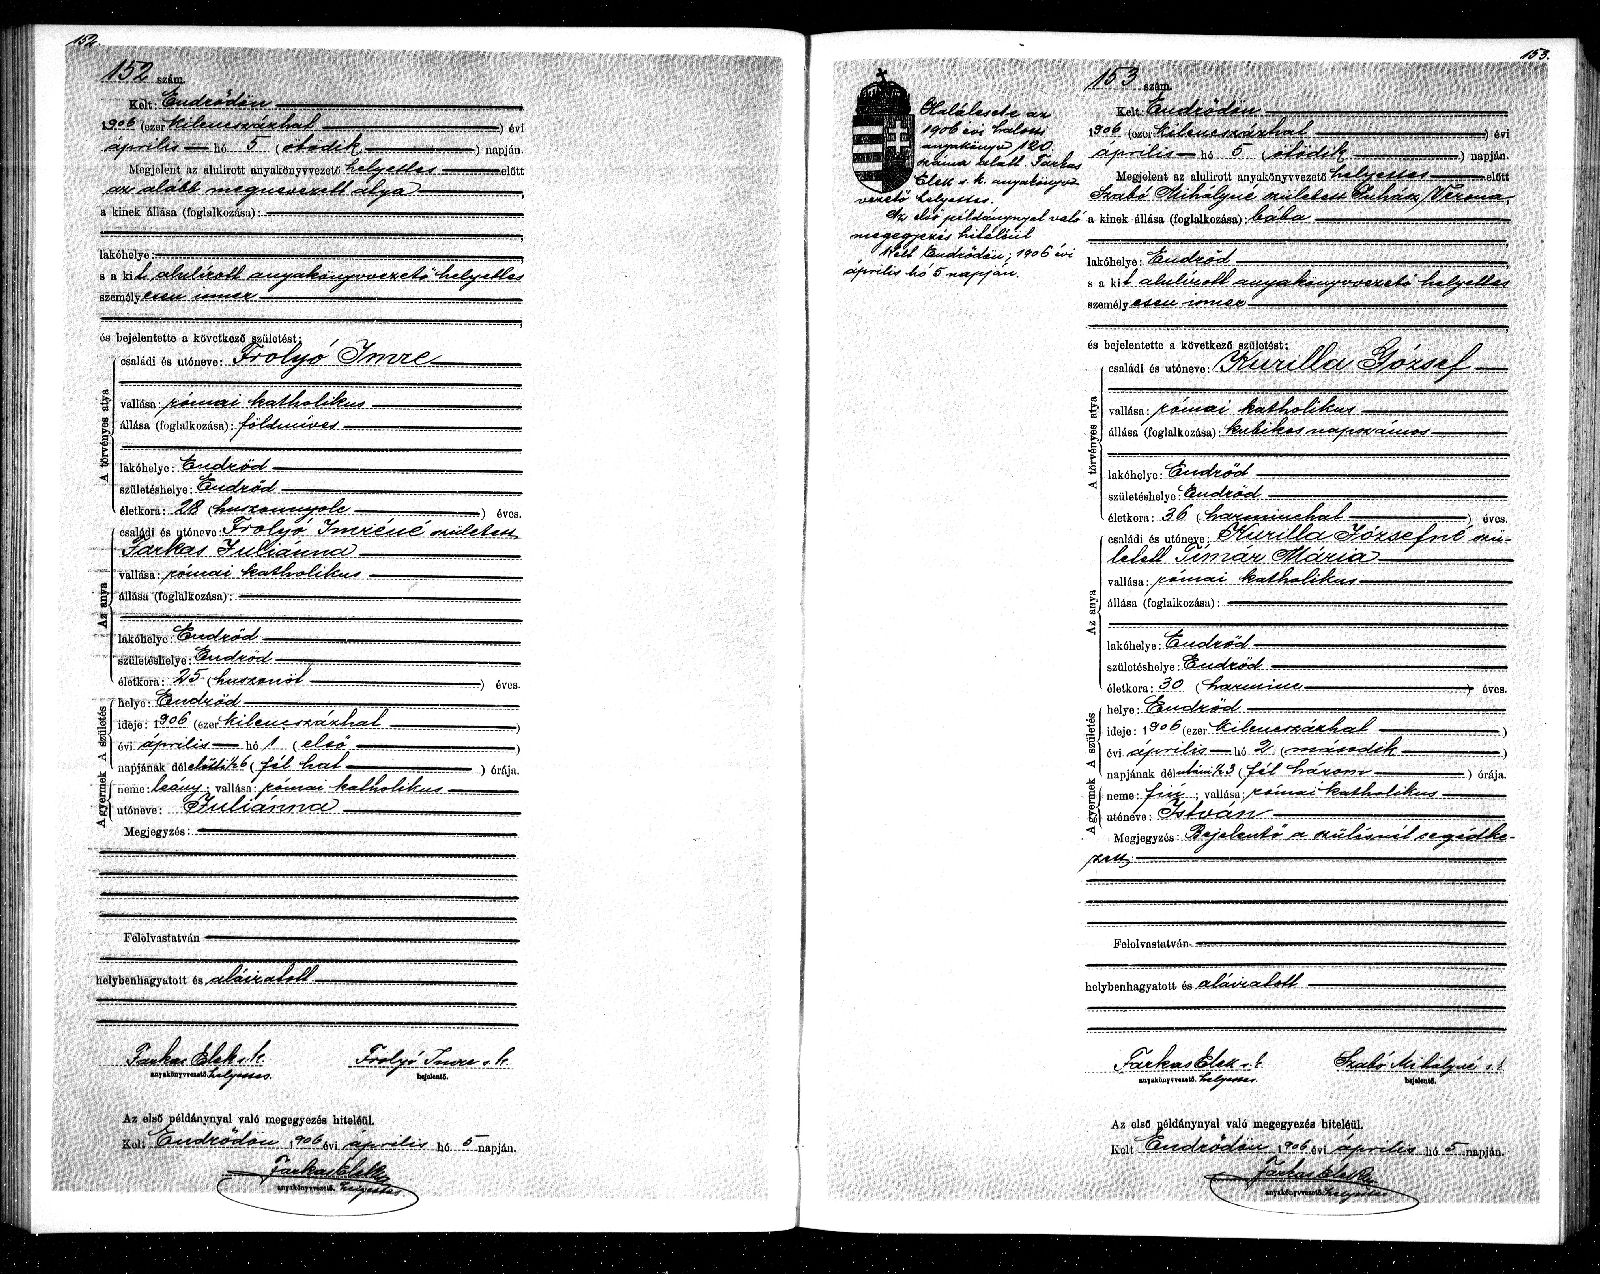 152.
152 szám.
Kelt: Endrődön
1906 (ezer kilenczszázhat) évi
április hó 5 (ötödik) napján.
Megjelent az alulirott anyakönyvvezető helyettes előtt
az alább megnevezett atya
a kinek állása (foglalkozása):
lakóhelye:
s a kit alulírott anyakönyvvezető helyettes
személyesen ismer
és bejelentette a következő születést:
A törvényes atya
családi és utóneve: Frolyó Imre
vallása: római katholikus
állása (foglalkozása): földmíves
lakóhelye: Endrőd
születéshelye: Endrőd
életkora: 28 (huszonnyolc) éves.
Az anya
családi és utóneve: Frolyó Imréné született
Farkas Juliánna
vallása: római katholikus
állása (foglalkozása):
lakóhelye: Endrőd
születéshelye: Endrőd
életkora: 25 (huszonöt) éves.
A születés
helye: Endrőd
ideje: 1906 (ezer kilencszázhat)
évi április hó 1 (első)
napjának délelőtti ½6 (fél hat) órája.
A gyermek
neme: leány; vallása: római katholikus
utóneve: Juliánna
Megjegyzés:
Felolvastatván
helybenhagyatott és aláiratott
Farkas Elek s. k. Frolyó Imre s. k.
anyakönyvvezető. helyettes bejelentő.
Az első példánynyal való megegyezés hiteléül.
Kelt Endrődön 1906 évi április hó 5 napján.
Farkas Elek
anyakönyvvezető. helyettes
153.
Halálesete az
1906 évi halotti
anyakönyv 120
száma alatt Farkas
Elek s. k. anyakönyv
vezető helyettes.
Az első példánynyal való
megegyezés hiteléül
Kelt Endrődön, 1906 évi
április hó 5 napján.
153 szám.
Kelt: Endrődön
1906 (ezer kilencszázhat) évi
április hó 5 (ötödik) napján.
Megjelent az alulirott anyakönyvvezető helyettes előtt
Szabó Mihályné született Juhász Verona,
a kinek állása (foglalkozása): bába
lakóhelye: Endrőd
s a kit alulírott anyakönyvvezető helyettes
személyesen ismer
és bejelentette a következő születést:
A törvényes atya
családi és utóneve: Kurilla József
vallása: római katholikus
állása (foglalkozása): kubikos napszámos
lakóhelye: Endrőd
születéshelye: Endrőd
életkora: 36 (harminchat) éves.
Az anya
családi és utóneve: Kurilla Józsefné szü-
letett Tímár Mária
vallása: római katholikus
állása (foglalkozása):
lakóhelye: Endrőd
születéshelye: Endrőd
életkora: 30 (harminc) éves.
A születés
helye: Endrőd
ideje: 1906 (ezer kilencszázhat)
évi április hó 2 (második)
napjának délutáni ½3 (fél három) órája.
A gyermek
neme: fiú; vallása: római katholikus
utóneve: István
Megjegyzés: Bejelentő a szülésnél segédke-
zett,
Felolvastatván
helybenhagyatott és aláiratott
Farkas Elek s. k. Szabó Mihályné s. k.
anyakönyvvezető. helyettes bejelentő.
Az első példánynyal való megegyezés hiteléül.
Kelt Endrődön 1906 évi április hó 5 napján.
Farkas Elek
anyakönyvvezető. helyettes